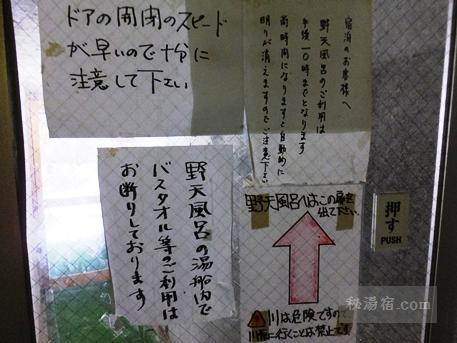 ドアの開閉のスピード
が早いので十分に
注意して下さい
宿泊のお客様へ
野天風呂のご利用は
午後一〇時までとなります
尚時間になりますと自動的に
明りが消えますのでご注意下さい
野天風呂の湯船内で
バスタオル等のご利用は
お断りしております
野天風呂へはこの扉を
出て下さい
川は危険ですので
に行くことは禁止です
押す
PUSH
秘湯宿.com